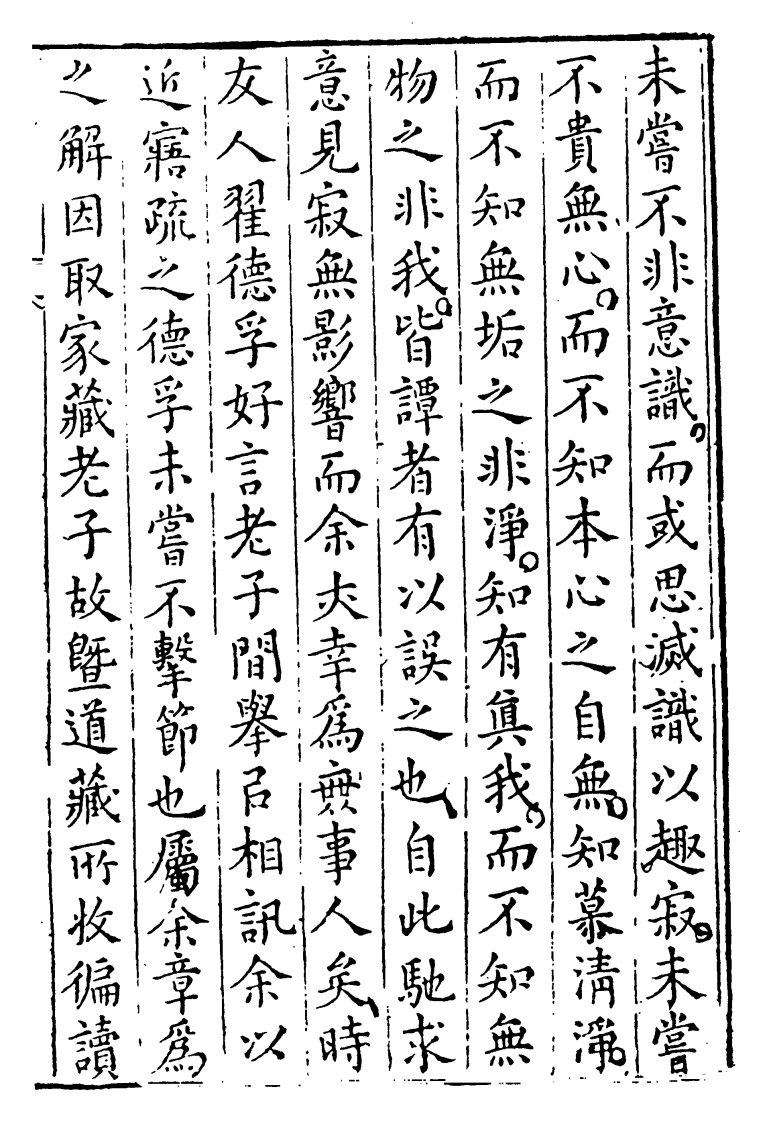 未嘗不非意識而或思滅識以趣寂未嘗
不貴無心而不知本心之自無知慕清淨
而不知無垢之非淨知有眞我而不知無
物之非我皆譚者有以誤之也自此馳求
意見寂無影響而余亦幸爲無事人矣時
友人翟德孚好言老子間舉㠯相訊余以
近寤疏之德孚未嘗不擊節也屬余章爲
之解因取家藏老子故曁道藏所收徧讀